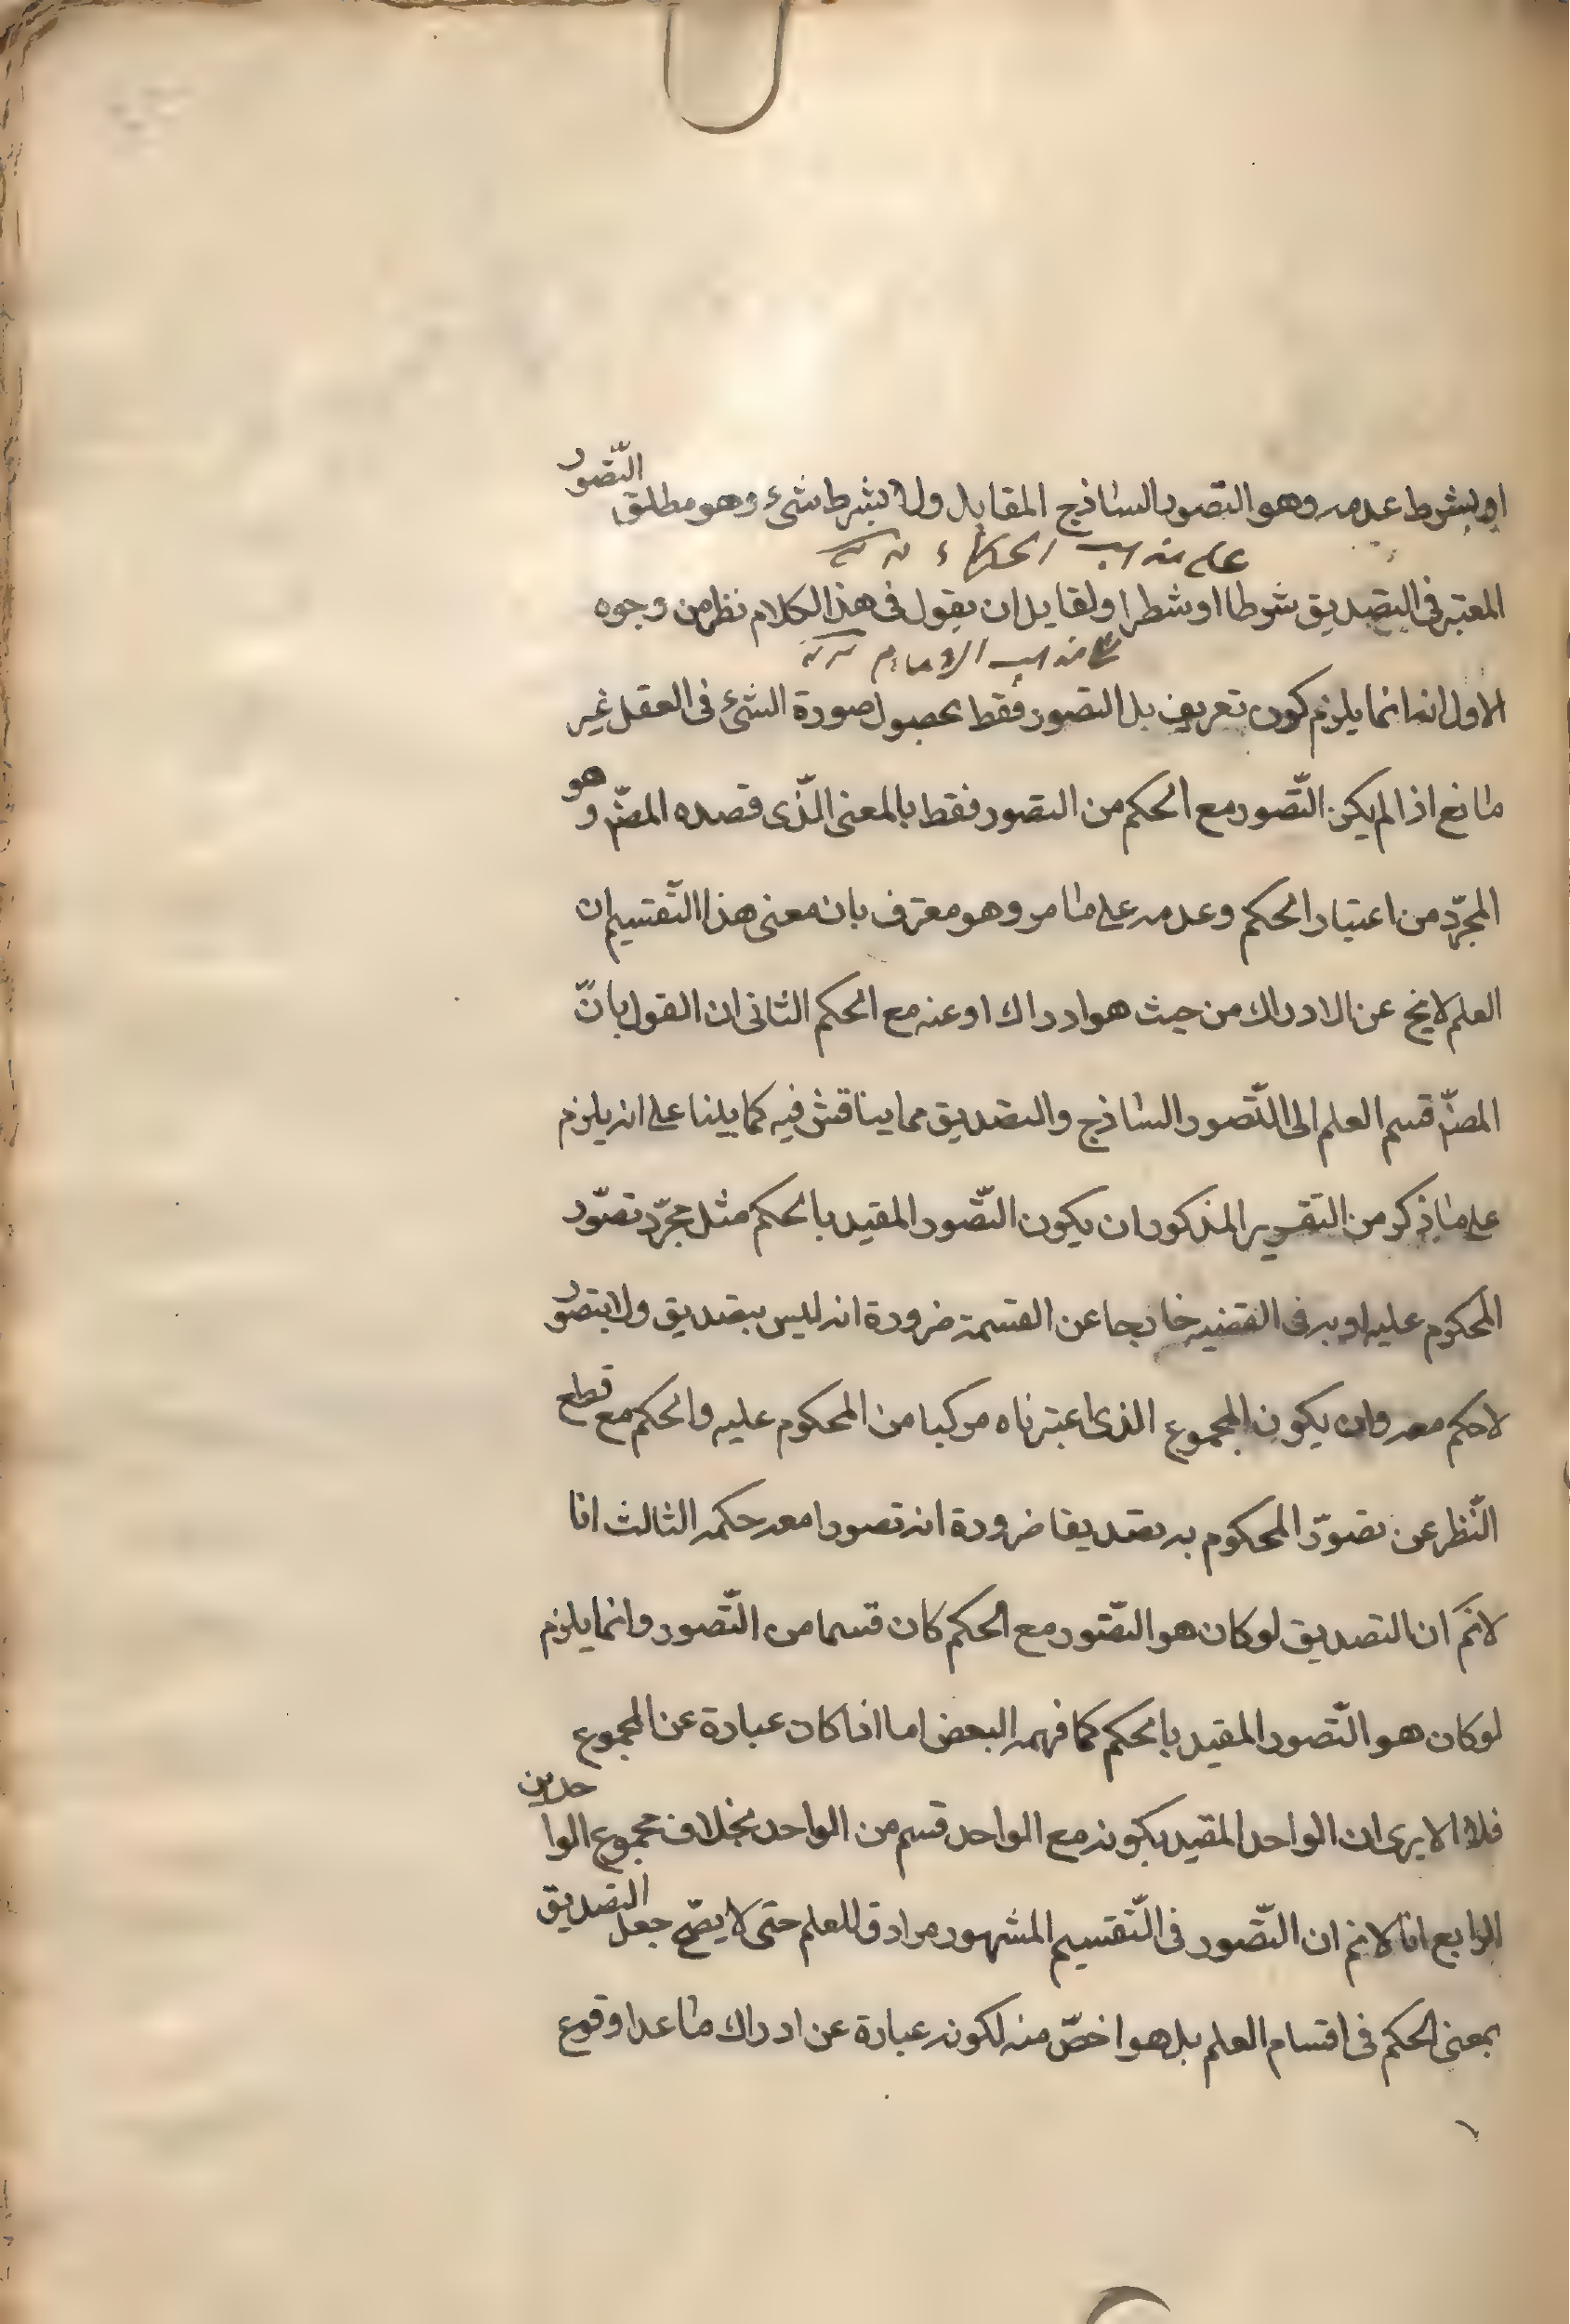 او بشرط عدمه وهو التصور الساذج المقابل ولا بشرط شئ وهو مطلق التّصور
على مذهب الحكماء
المعتبر فى التصديق شرطا او شطرا ولقايل ان يقول فى هذا الكلام نظر من وجوه
مذهب الامام
الاول انه انما يلزم كون تعريف بل التصور فقط بحصول صورة الشئ فى العقل غير
مانع اذا لم يكن التّصور مع الحكم من التصور فقط بالمعنى الّذى قصده المصّ وهو
المجرّد من اعتبار الحكم وعدمه على ما مر وهو معترف بان معنى هذا التّقسيم ان
العلم لا يخ عن الادراك من حيث هو ادراك او عنه مع الحكم الثانى ان القول بانّ
المصّ قسم العلم الى التّصور الساذج والتصديق مما يناقش فيه كما بينا على انه يلزم
على ما ذكر من التقرير المذكور ان يكون التّصور المقيد بالحكم مثل مجرّد تصوّر
المحكوم عليه او به فى القضيه خارجا عن القسمة ضرورة انه ليس بتصديق ولا بتصور
لا حكم معه وان يكون المجموع الذى اعتبرناه مركبا من المحكوم عليه والحكم مع قطع
النّظر عن تصوّر المحكوم به تصديقا ضرورة انه تصورا معه حكمه الثالث انا
لانمّ ان التصديق لو كان هو التّصور مع الحكم كان قسما من التّصور وانما يلزم
لو كان هو التّصور المقيد بالحكم كما فهمه البعض اما اذا كان عبارة عن المجموع
فلا الا يرى ان الواحد المقيد بكونه مع الواحد قسم من الواحد بخلاف مجموع الواحدين
الرابع انا لانم ان التّصور فى التّقسيم المشهور مرادف للعلم حتى لا يصحّ جعل التصديق
بمعنى الحكم فى اقسام العلم بل هو اخصّ منه لكونه عبارة عن ادراك ما عدا وقوع